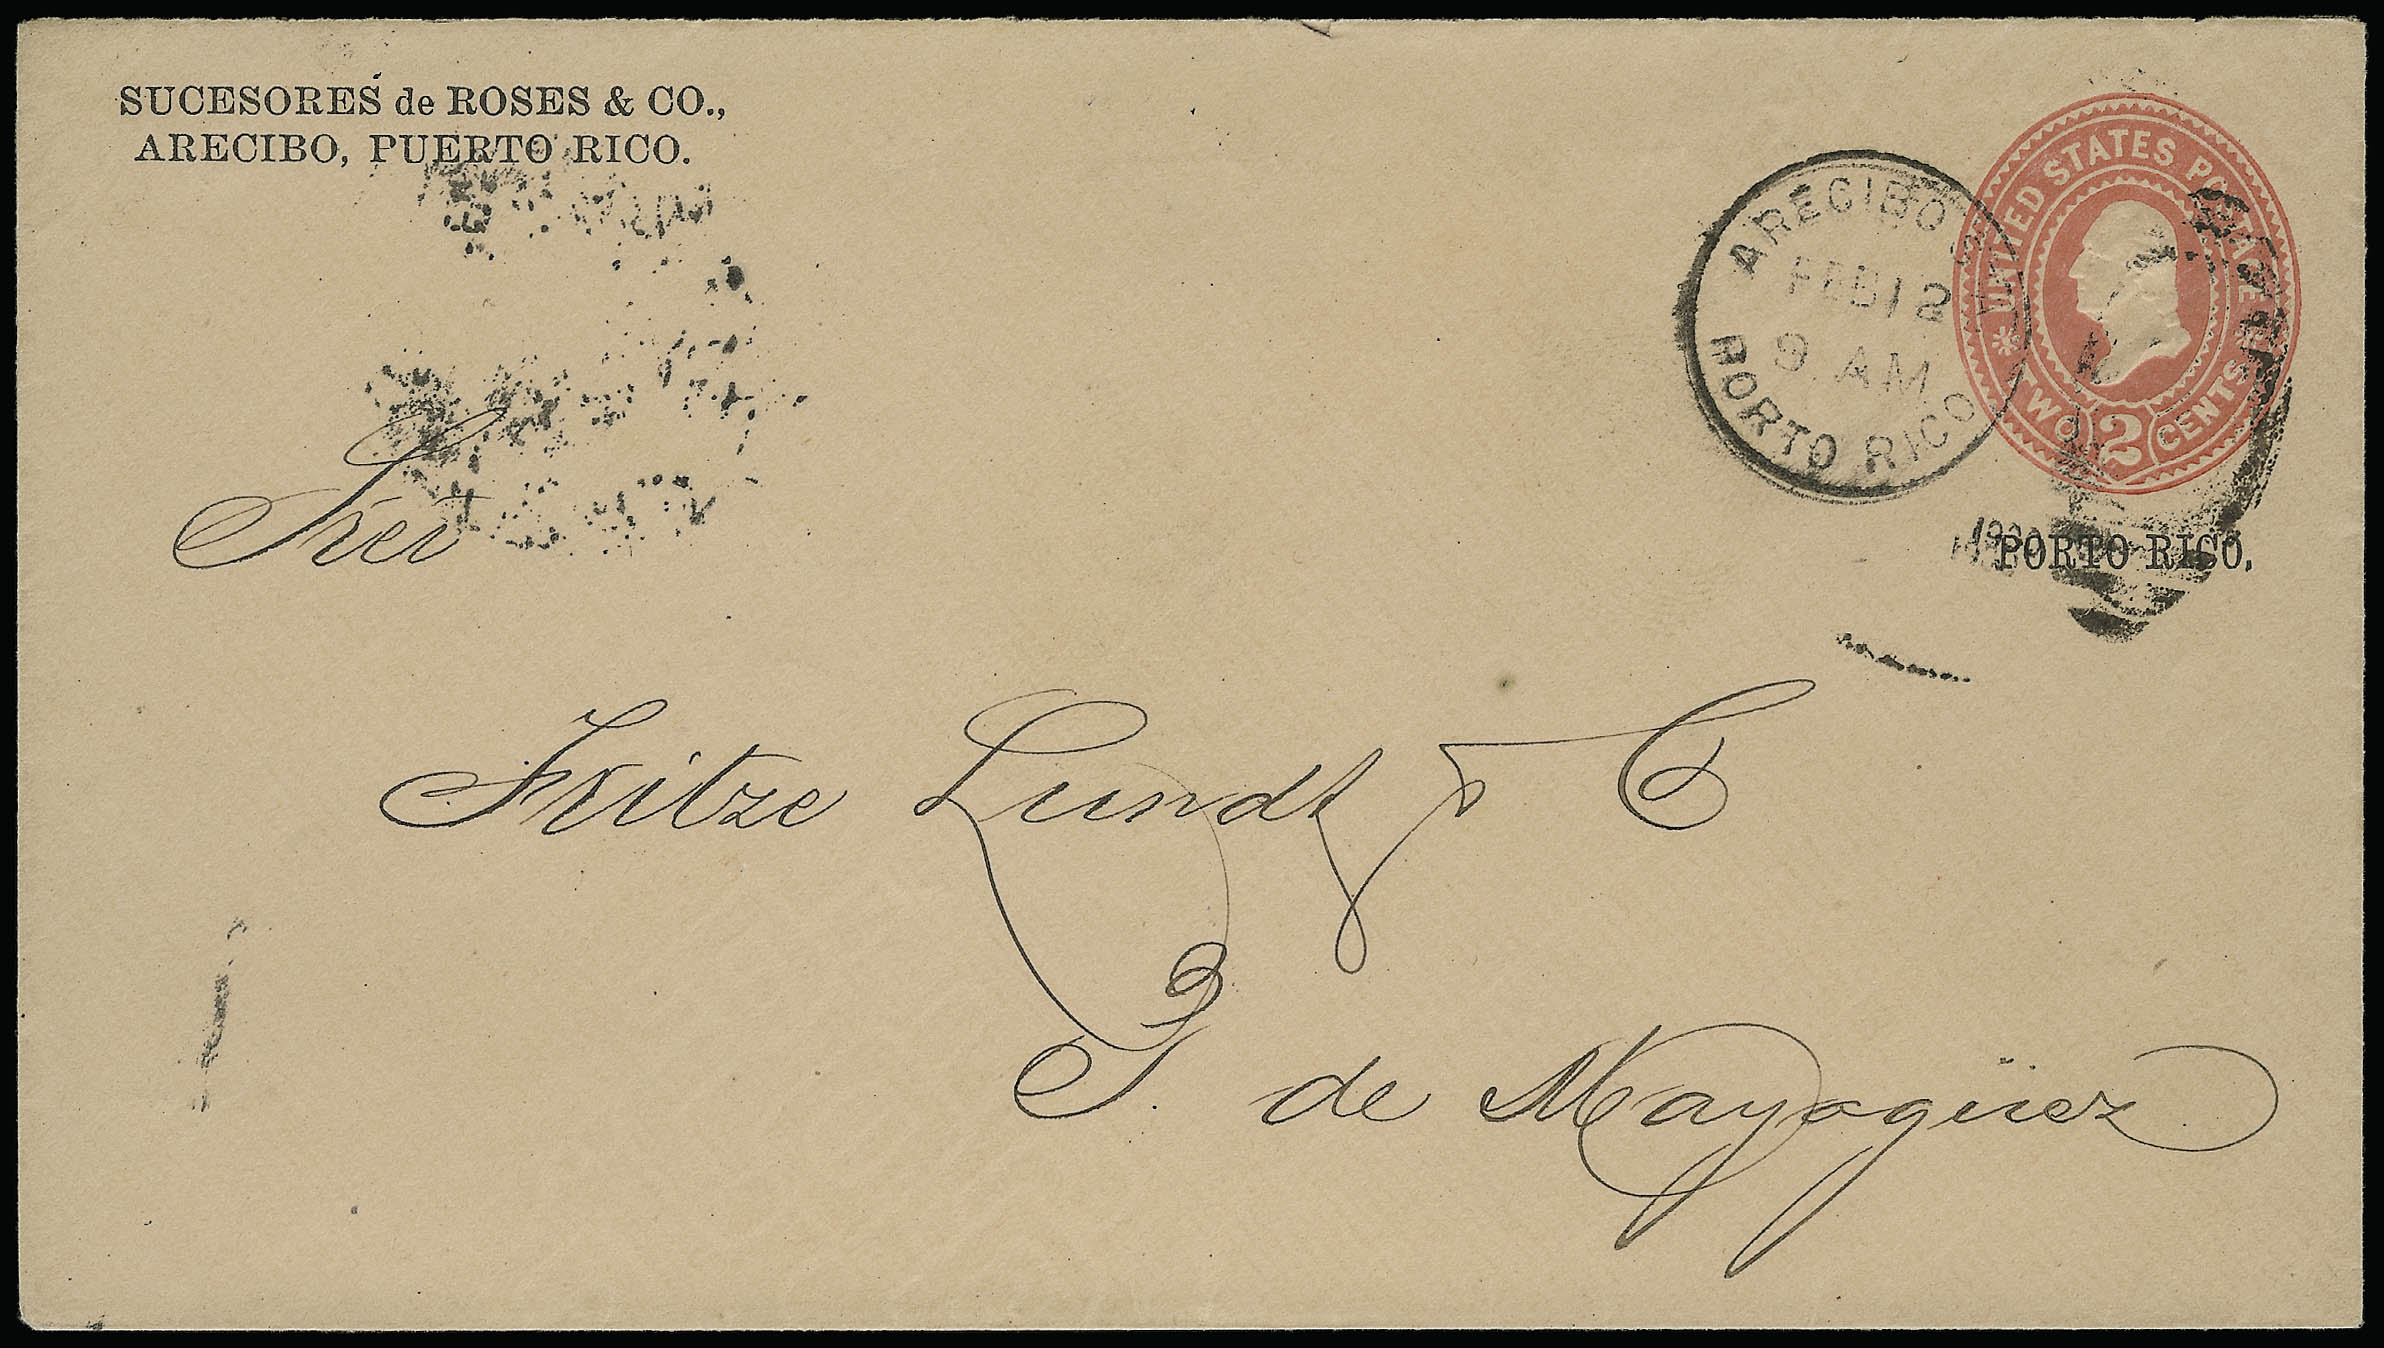 SUCESORES de ROSES & CO.,
ARECIBO, PUERTO RICO.
UNITED STATES POSTAGE
TWO 2 CENTS
ARECIBO
FEB 12
9 AM
PORTO RICO
PORTO RICO.
Fritze Lundt & C
de Mayagüez